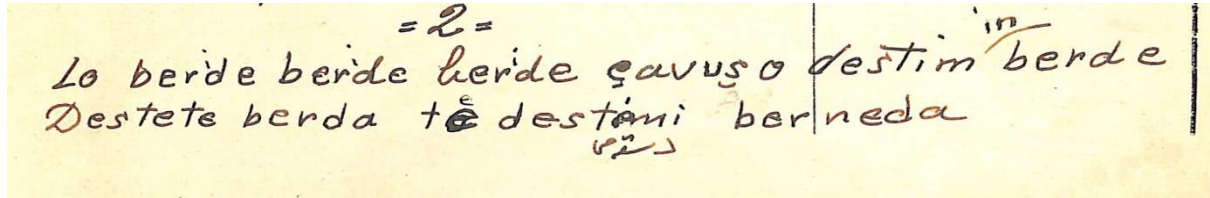 =2=
Lo berde berde berde çavuşo destim in berde
Destete berda tê destêmi berneda
دستمی